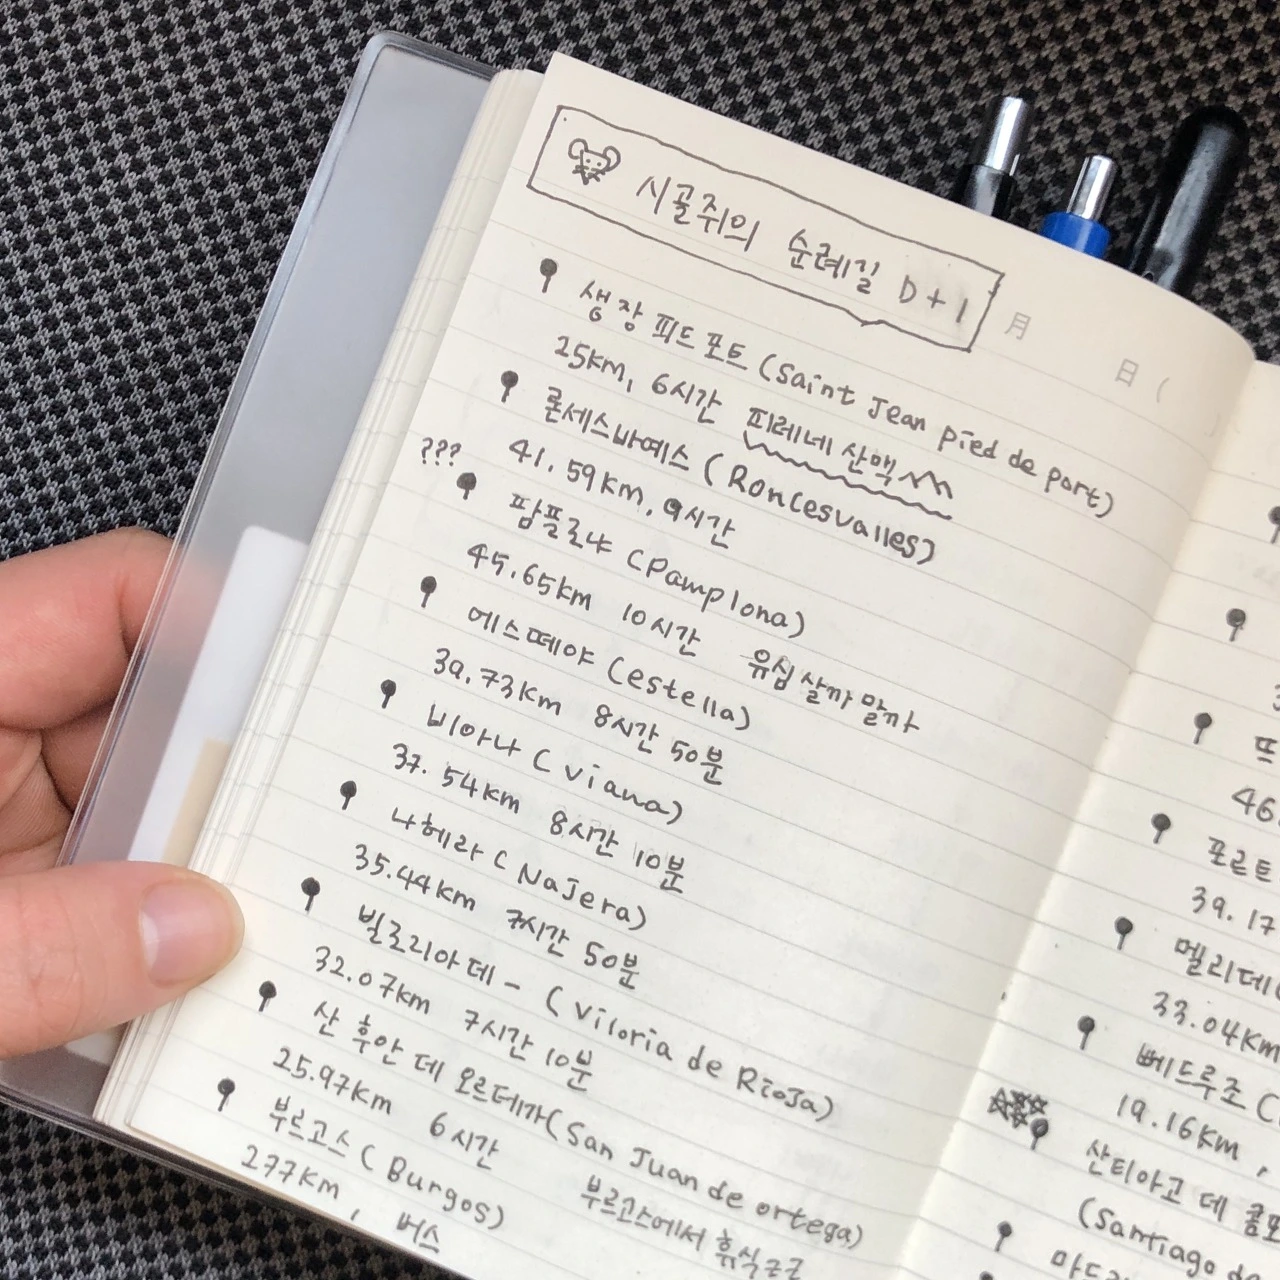 시골쥐의 순례길 D+1
月 日 (
생장 피드 포트 (Saint Jean pied de port)
25km, 6시간 피레네 산맥
론세스바예스 (Roncesvalles)
??? 41.59km, 9시간
팜플로냐 (Pamplona)
45.65km 10시간 유심 살까 말까
에스떼야 (estella)
39.73km 8시간 50분
비아나 (viana)
37.54km 8시간 10분
나헤라 (NaJera)
35.44km 7시간 50분
빌로리아 데 - (Viloria de RioJa)
32.07km 7시간 10분
산 후안 데 오르테가 (San Juan de ortega)
25.97km 6시간
부르고스 (Burgos) 부르고스에서 휴식ㄹㄹ
277km, 버스
뜨
46.
포르토
39.17
멜리데
33.04km
뻬드루조 (
19.16km,
산티아고 데
(Santiago de
마드